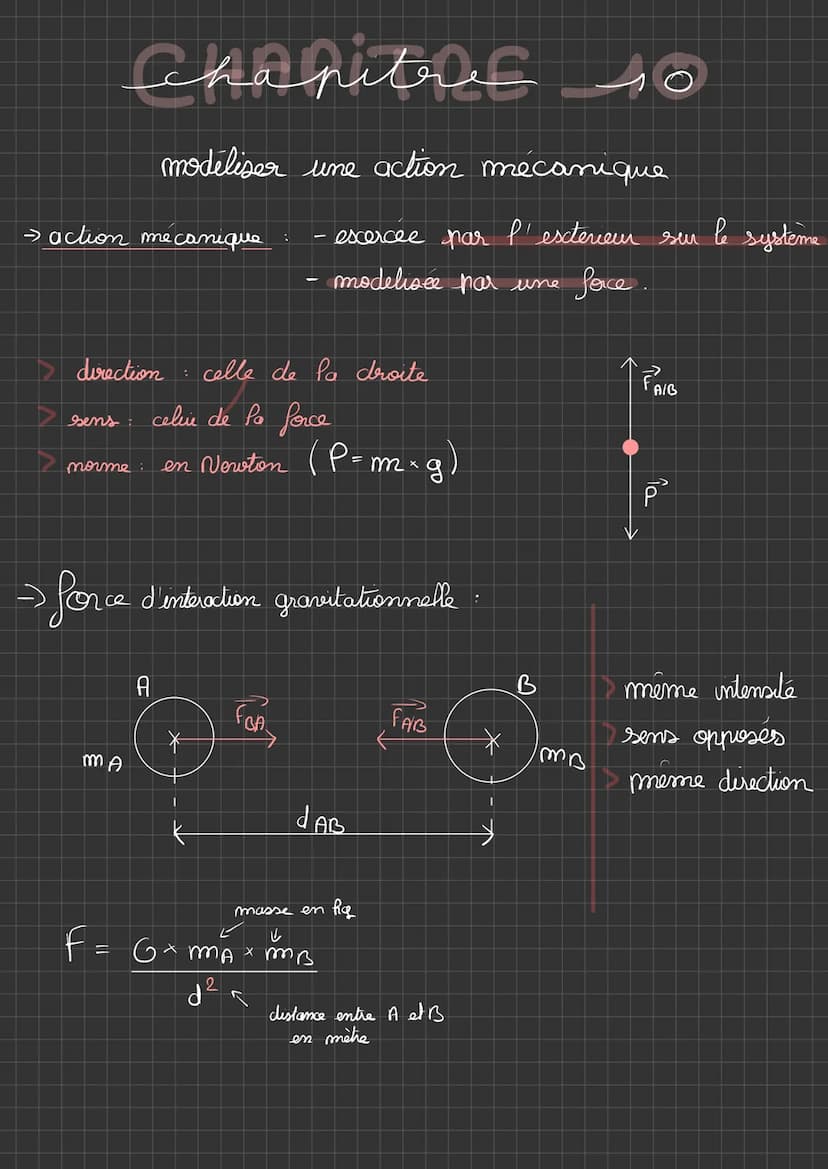 CHAPITRE 10
chapitre 10
modéliser une action mécanique
→ action mécanique : - exercée par l'extérieur sur le système
- modélisée par une force.
> direction : celle de la droite
> sens : celui de la force
> norme : en Newton (P = m × g)
F A/B
P
→ force d'interaction gravitationnelle :
A
B
F B/A
F A/B
m A
m B
d AB
> même intensité
> sens opposés
> même direction
masse en kg
F = G × mA × mB
d²
distance entre A et B
en mètre